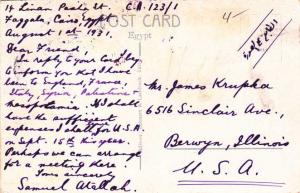 14 Linan Pasha St. C.A. 123/1
Faggala, Cairo, Egypt
August 1st 1931.
POST CARD
Egypt
4-
Dear Friend,
In reply to your Card, I beg
to inform you that I have
been in England, France,
Italy, Syria, Palestine &
Mesopotamia. If I shall
have the sufficient
expenses I shall for U.S.A
on Sept. 15th this year.
Perhaps we can arrange
for a meeting here
Yours sincerely
Samuel Atallah.
Mr. James Krupka
6516 Sinclair Ave.,
Berwyn, Illinois
U.S.A.